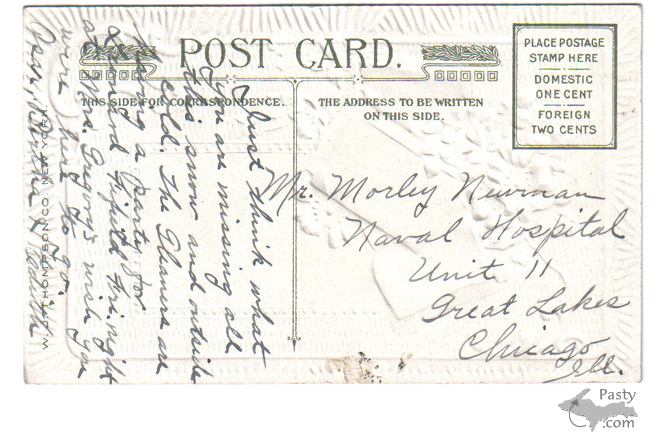 POST CARD.
PLACE POSTAGE
STAMP HERE
DOMESTIC
ONE CENT
FOREIGN
TWO CENTS
THIS SIDE FOR CORRESPONDENCE.
THE ADDRESS TO BE WRITTEN
ON THIS SIDE.
Mr. Morley Newman
Naval Hospital
Unit 11
Great Lakes
Chicago
Ill.
Just think what
you are missing all
this snow and outside
cold. The Gleaners are
having a party for
Fri. night
at Mrs. Gregory's wish you
were here to go.
Bertha
W. J. THOMPSON CO. NEW YORK
Pasty
.com